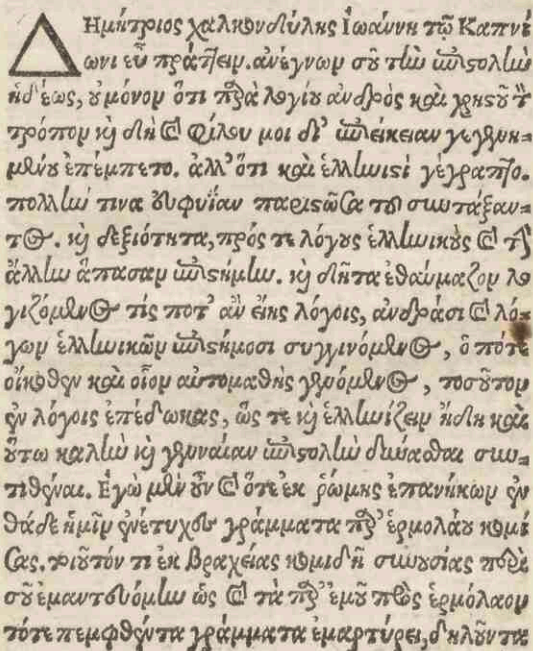 Δημήτριος χαλκονδύλης Ἰωάννῃ τῷ Καπνί
ωνι εὖ πράττειν. ἀνέγνων σοῦ τὴν ἐπιστολὴν
ἡδέως, οὐ μόνον ὅτι παρὰ λογίου ἀνδρὸς καὶ χρηστοῦ τὸν
τρόπον καὶ δὴ καὶ φίλου μοι δι' ἐπιείκειαν γεγενη-
μένου ἐπέμπετο. ἀλλ' ὅτι καὶ ἑλληνιστὶ γέγραπτο.
πολλήν τινα εὐφυΐαν παριστῶσα τοῦ συντάξαν-
τος. καὶ δεξιότητα, πρός τε λόγους ἑλληνικοὺς καὶ τὴν
ἄλλην ἅπασαν ἐπιστήμην. καὶ δῆτα ἐθαύμαζον λο
γιζόμενος τίς ποτ' ἂν εἴης λόγοις, ἀνδράσι καὶ λό-
γων ἑλληνικῶν ἐπιστήμοσι συγγινόμενος, ὁπότε
οἴκοθεν καὶ οἷον αὐτομαθὴς γενόμενος, τοσοῦτον
ἐν λόγοις ἐπέδωκας, ὥς τε καὶ ἑλληνίζειν ἤδη καὶ
οὕτω καλὴν καὶ γενναίαν ἐπιστολὴν δύνασθαι συν-
τιθέναι. Ἐγὼ μὲν οὖν καὶ ὅτε ἐκ ῥώμης ἐπανήκων ἐν
θάδε ἡμῖν ἐνέτυχες γράμματα παρ' ἑρμολάου κομί
σας. τοιοῦτόν τι ἐκ βραχείας κομιδῆ συνουσίας περὶ
σοῦ ἐμαντευόμην ὡς καὶ τὰ παρ' ἐμοῦ πρὸς ἑρμόλαον
τότε πεμφθέντα γράμματα ἐμαρτύρει, δηλοῦντα